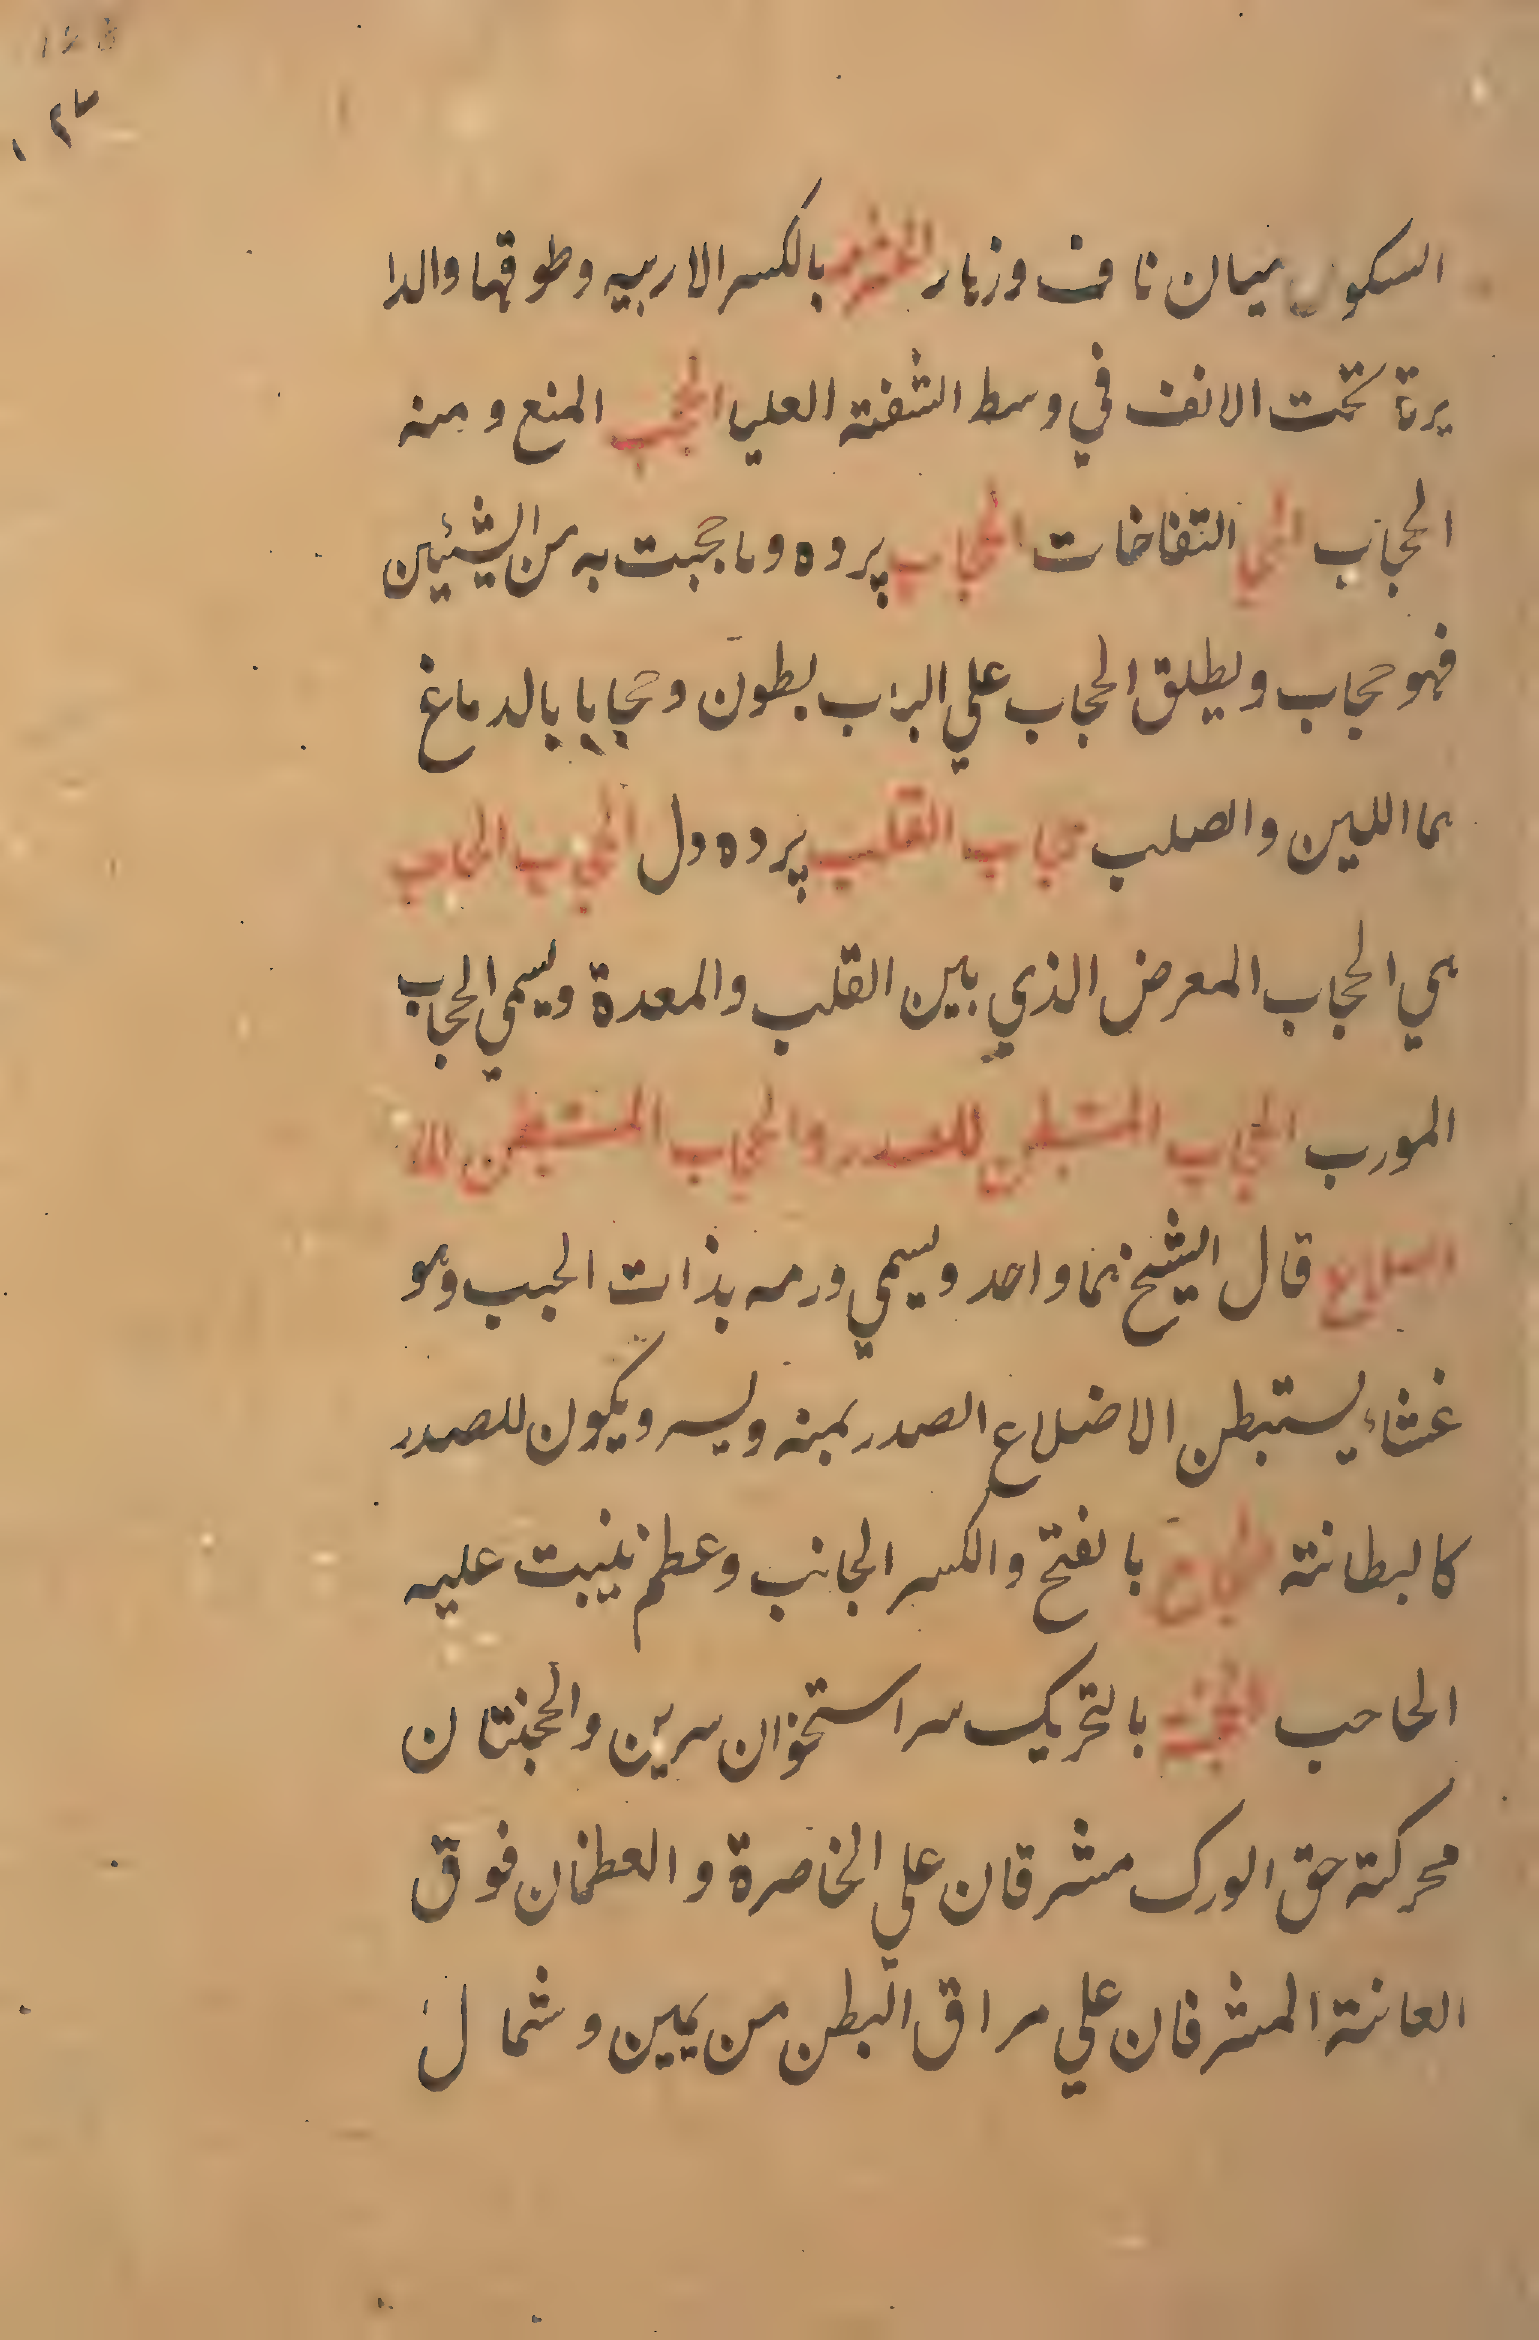 ١٢٣
السكون ميان ناف وزهار بالكسر الاربيه وطوقها والدا
يرة تحت الانف في وسط الشفة العليا الحجب المنع ومنه
الحجاب الحجا التفاخات الحجاب پرده وما حجبت به من الشيئين
فهو حجاب ويطلق الحجاب علي البراب بطون وحجابا بالدماغ
هما اللين والصلب حجاب القلب پرده دل الحجاب الحاجب
هي الحجاب المعرض الذي بين القلب والمعدة ويسمي الحجاب
المورب الحجاب المستبطن للصدر والحجاب المستبطن للا
اضلاع قال الشيخ هما واحد ويسمي ورمه بذات الجنب وهو
غشاء يستبطن الاضلاع الصدر يمنه ويسره ويكون للصدر
كالبطانة الحجاج بالفتح والكسر الجانب وعظم ينبت عليه
الحاحب الحجبة بالتحريك سر استخوان سرين والحجبتان
محركة حق الورك مشرفان علي الخاصرة والعظمان فوق
العانة المشرفان علي مراق البطن من يمين وشمال